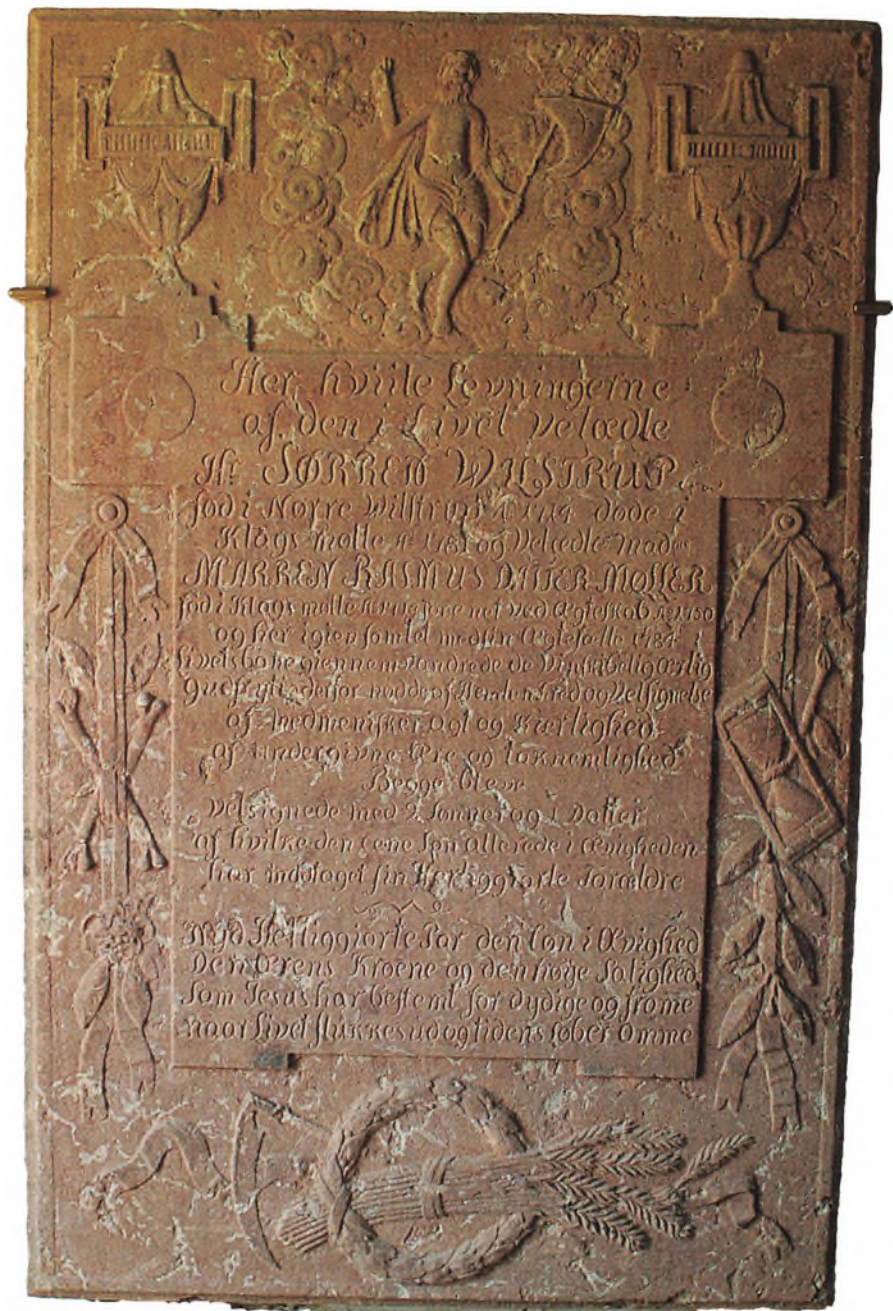 Her hviile Levningerne
af den i Livet Velædle
Hr SØRREN WILSTRUP
fød i Nørre Wilstrup Ao 1714 døde i
Klags-mølle Ao 1781 og Velædle Mad
MARREN RASMUS DATTER MØLLER
fød i Klags mølle forenet ved Ægteskab Ao 1750
og her igien samlet med sin Ægtefælle 1784
Livets bane giennemvandrede de Vinskibelig Ærlig
Gudfrygtig derfor nødde af Himlen Fred og Velsignelse
af medmenisker agt og Kierlighed
af undergivne Ære og taknemlighed
Begge bleve
velsignede med 2 Sønner og 1 Datter
af hvilke den eene Søn allerede i Ævigheden
har modtaget sin Helliggiorte Forældre
Nyd Helliggiorte Par den løn i Ævighed
Den Ærens Kroene og den høye Salighed
Som Jesus har bestemt for dydige og frome
naar Livet slukkes ud og tidens løber omme